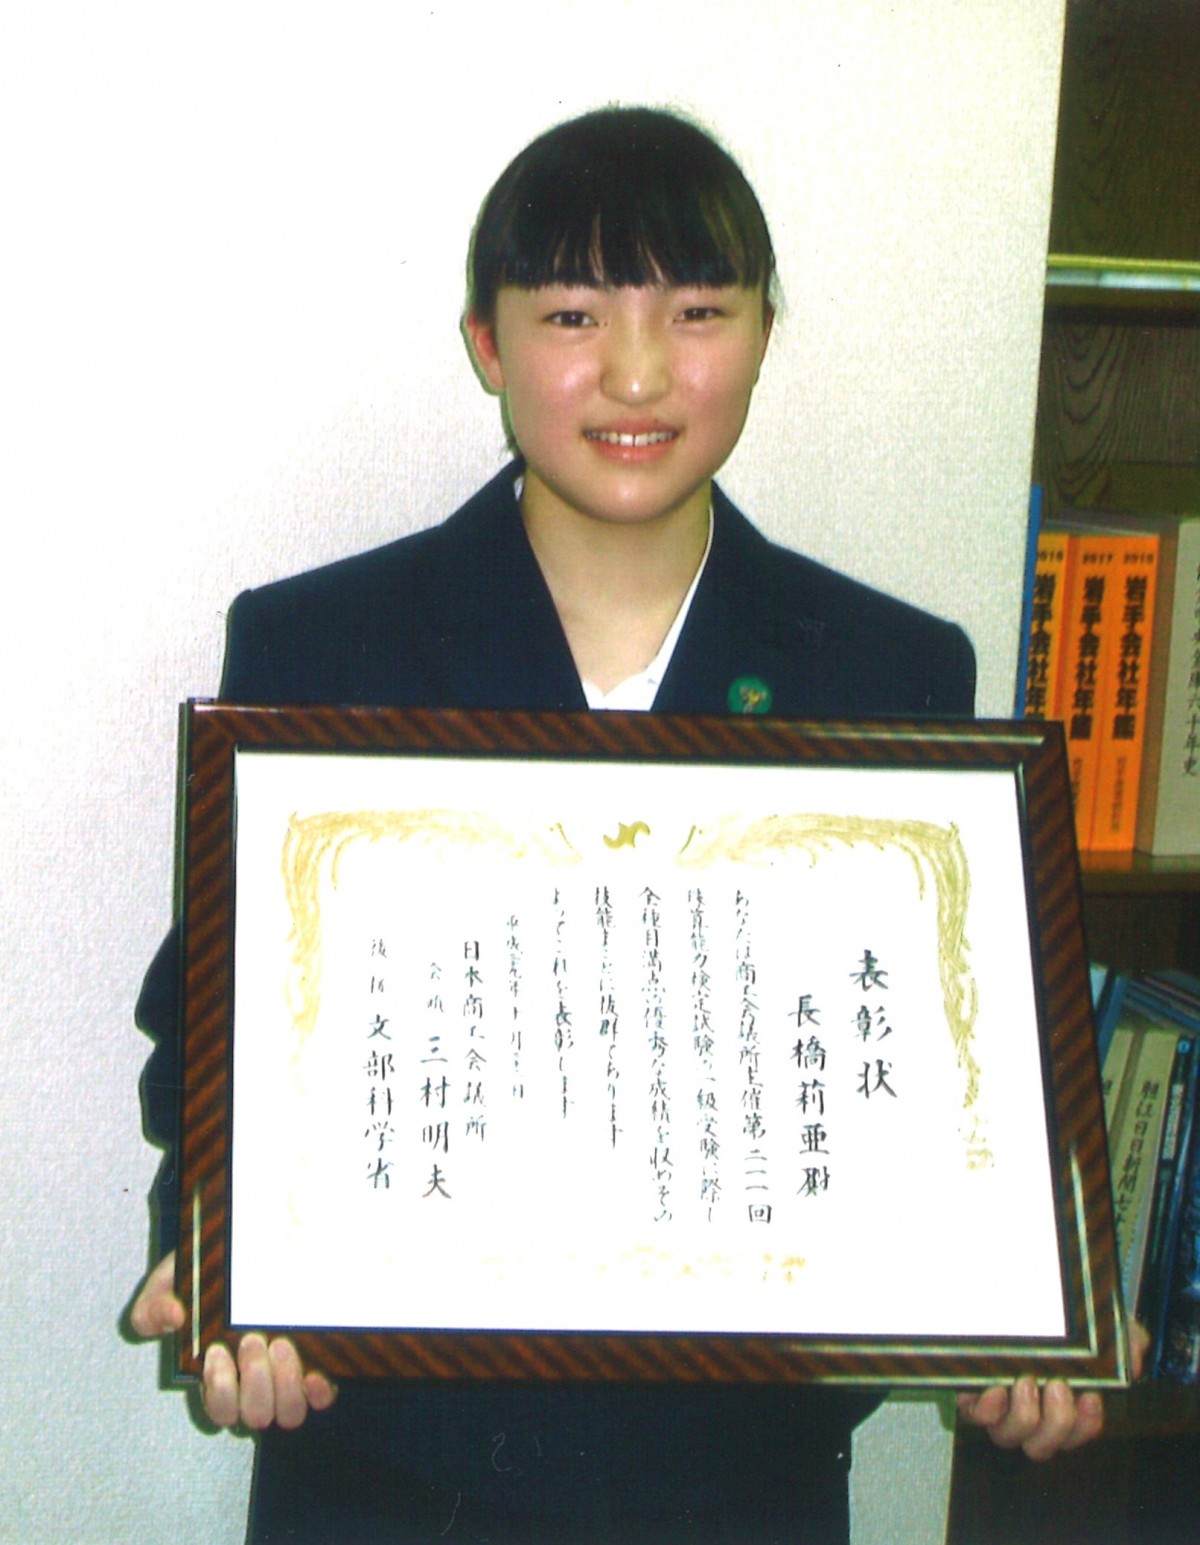 表彰状
長橋莉亜殿
あなたは商工会議所主催第二一一回
珠算能力検定試験の一級受験に際し
全種目満点の優秀な成績を収めその
技能まことに抜群であります
よってこれを表彰します
日本商工会議所
会頭 三村明夫
後援 文部科学省
岩手会社年鑑
2017 岩手会社年鑑
2016 岩手会社年鑑